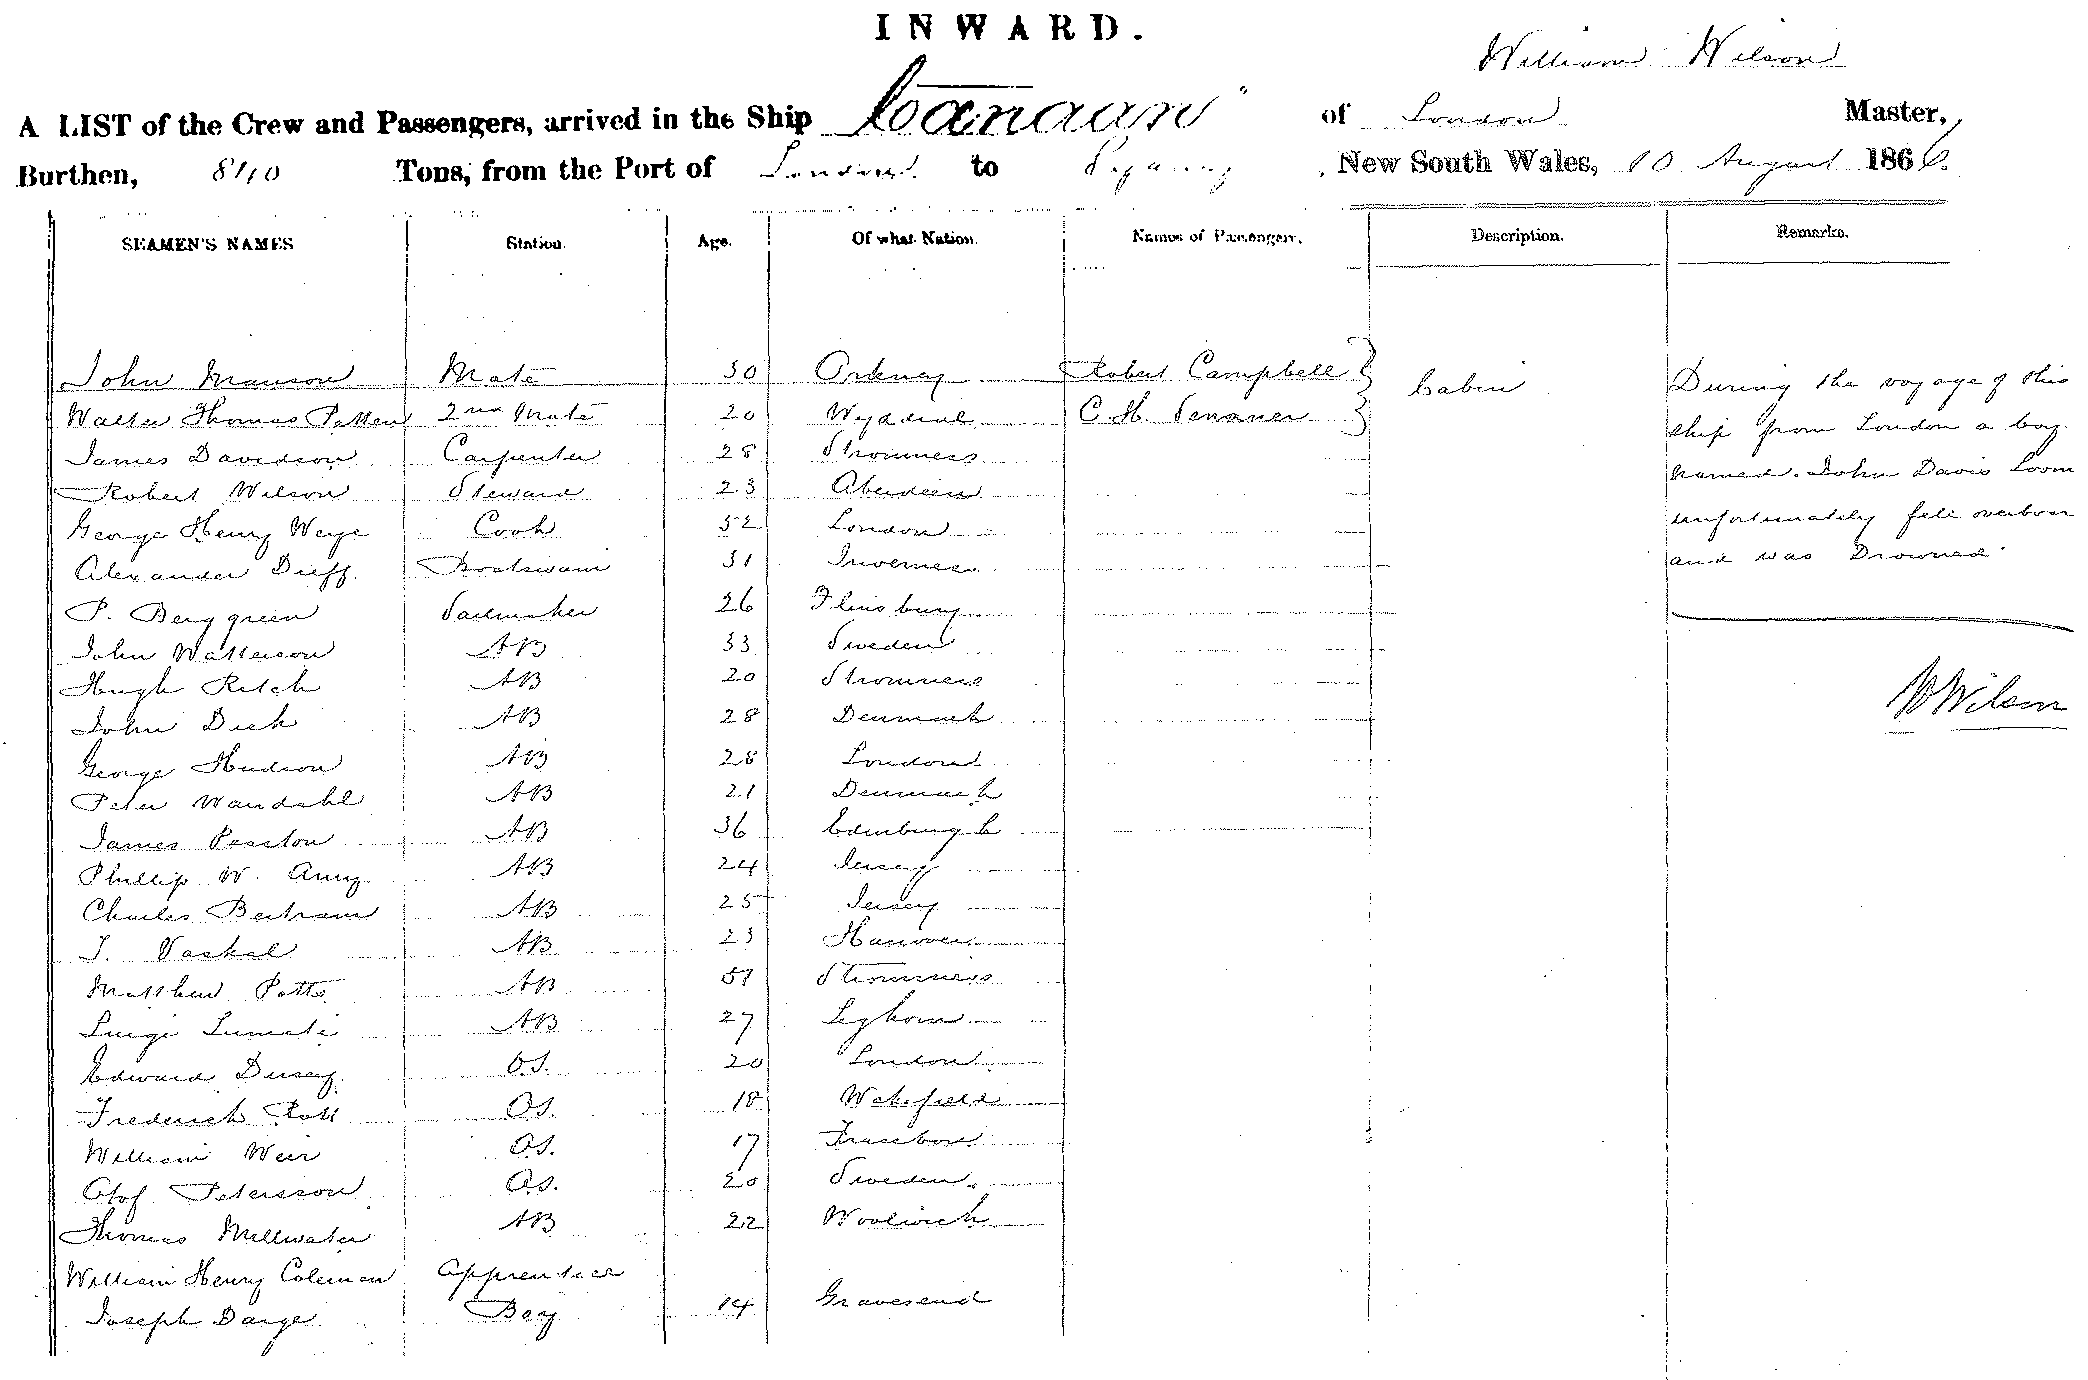 INWARD.
William Wilson
A LIST of the Crew and Passengers, arrived in the Ship "Canaan" of London Master,
Burthen, 840 Tons, from the Port of London to Sydney, New South Wales, 10 August 1866.
SEAMEN'S NAMES Station. Age. Of what Nation. Names of Passengers. Description. Remarks.
John Manson Mate 30 Orkney Robert Campbell Cabin During the voyage of this
Walter Thomas Petten 2nd Mate 20 C. H. ship from London a boy
James Davidson Carpenter 28 Stromness named John Davis Loom
Robert Wilson Steward 23 Aberdeen unfortunately fell overboar
George Henry Weye Cook 52 London and was Drowned
Alexander Duff Boatswain 31 Inverness
P. Berggreen Sailmaker 26
John Watterson AB 33 Sweden
Hugh Ritch AB 20 Stromness W Wilson
John Dick AB 28 Denmark
George Hudson AB 28 London
Peter Wandahl AB 21 Denmark
James Paxton AB 36 Edinburgh
Phillip W. Amy AB 24 Jersey
Charles Bertram AB 25 Jersey
AB 23 Hanover
Matthew Potts AB 51 Stromness
Luigi AB 27 Leghorn
Edward O.S. 20 London
Frederick O.S. 18 Wakefield
William Weir O.S. 17
Olof Petersson O.S. 20 Sweden
Thomas Millwater AB 22 Woolwich
William Henry Coleman Apprentice
Joseph Darge Boy 14 Gravesend